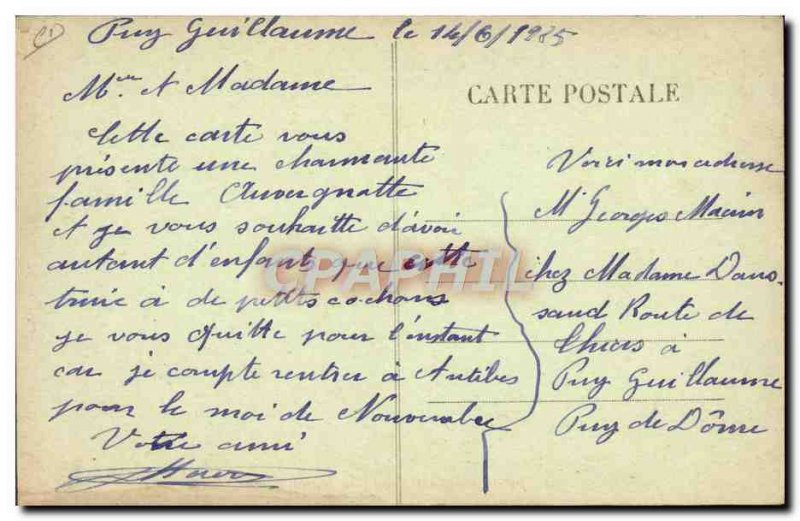 Puy Guillaume le 14/6/1935
Mr et Madame
Cette carte vous
présente une charmante
famille Auvergnatte
et je vous souhaitte d'avoir
autant d'enfant que cette
truie à de petits cochons
je vous quitte pour l'instant
car je compte rentrer à Antibes
pour le moi de Nouvembre
Votre ami
CARTE POSTALE
Voici mon adresse
Mr Georges
chez Madame Daus-
saud Route de
à
Puy Guillaume
Puy de Dôme
CPAPHIL